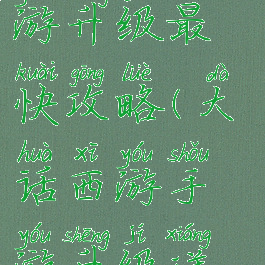 游升级最
kuài gōng lüè dà
快攻略(大
huà xī yóu shǒu
话西游手
yóu shēng jí xiáng
游升级详